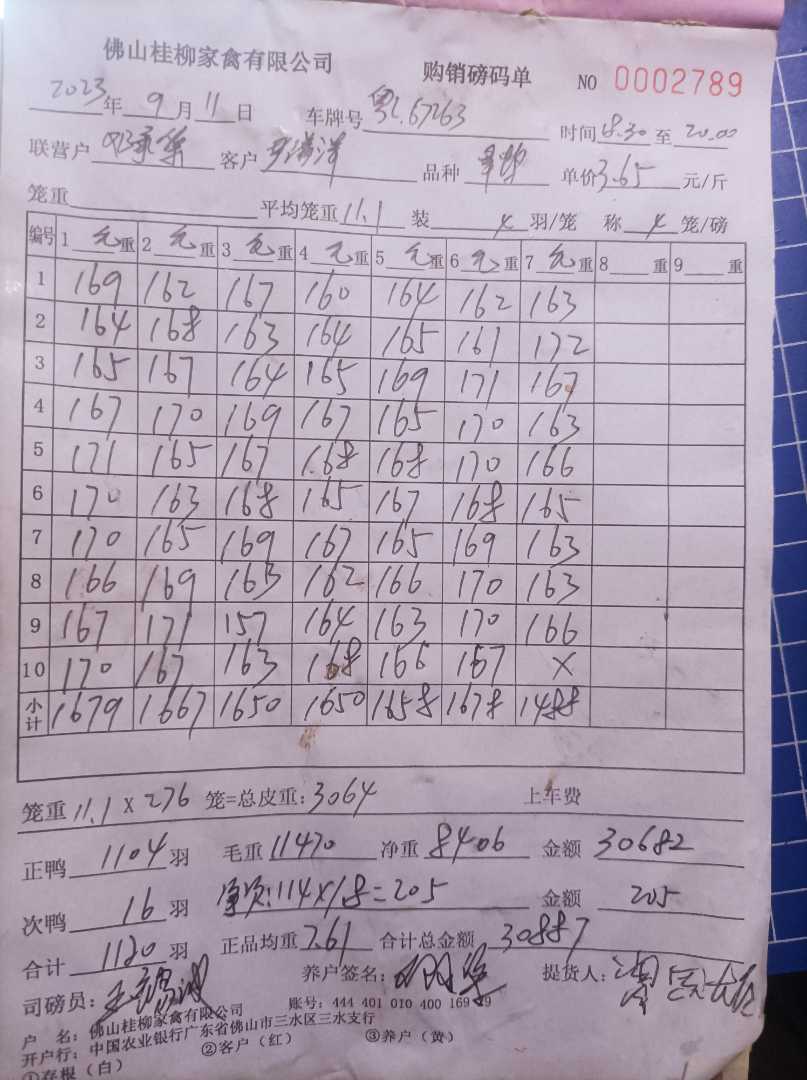 佛山桂柳家禽有限公司 购销磅码单 NO 0002789
2023年 9月 11日 车牌号 67263 时间 18.30 至 20.00
联营户 客户 品种 单价 3.65 元/斤
笼重 平均笼重 11.1 装 4 羽/笼 称 4 笼/磅
编号 1 毛重 2 毛重 3 毛重 4 毛重 5 毛重 6 毛重 7 毛重 8 重 9 重
1 169 162 167 160 164 162 163
2 164 168 163 164 165 161 172
3 165 167 164 165 169 171 167
4 167 170 169 167 165 170 163
5 171 165 167 168 168 170 166
6 170 163 168 165 167 168 165
7 170 165 169 167 165 169 163
8 166 169 163 162 166 170 163
9 167 171 157 164 163 170 166
10 170 167 163 168 166 167 X
小计 1679 1667 1650 1650 1658 1678 1488
笼重 11.1 X 276 笼=总皮重: 3064 上车费
正鸭 1104 羽 毛重 11470 净重 8406 金额 30682
次鸭 16 羽 114 X 1.8 = 205 金额 205
合计 1120 羽 正品均重 7.61 合计总金额 30887
司磅员: 养户签名: 提货人:
户 名: 佛山桂柳家禽有限公司 账号: 444 401 010 400 169 9
开户行: 中国农业银行广东省佛山市三水区三水支行
①存根（白） ②客户（红） ③养户（黄）